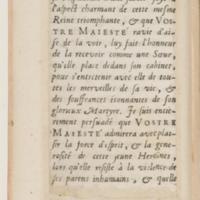 l'aspect charmant de cette mesme
Reine triomphante, & que VOS-
TRE MAIESTÉ ravie d'aise
de la voir, luy fait l'honneur
de la recevoir comme une Sœur,
qu'elle place dedans son cabinet,
pour s'entretenir avec elle de toutes
les merveilles de sa vie, &
des souffrances étonnantes de son
glorieux Martyre. Je suis entie-
rement persuadé que VOSTRE
MAIESTÉ admirera avec plai-
sir la force d'esprit, & la gene-
rosité de cette jeune Heroïne,
lors qu'elle resiste à la violence de
ses parens inhumains, & quelle